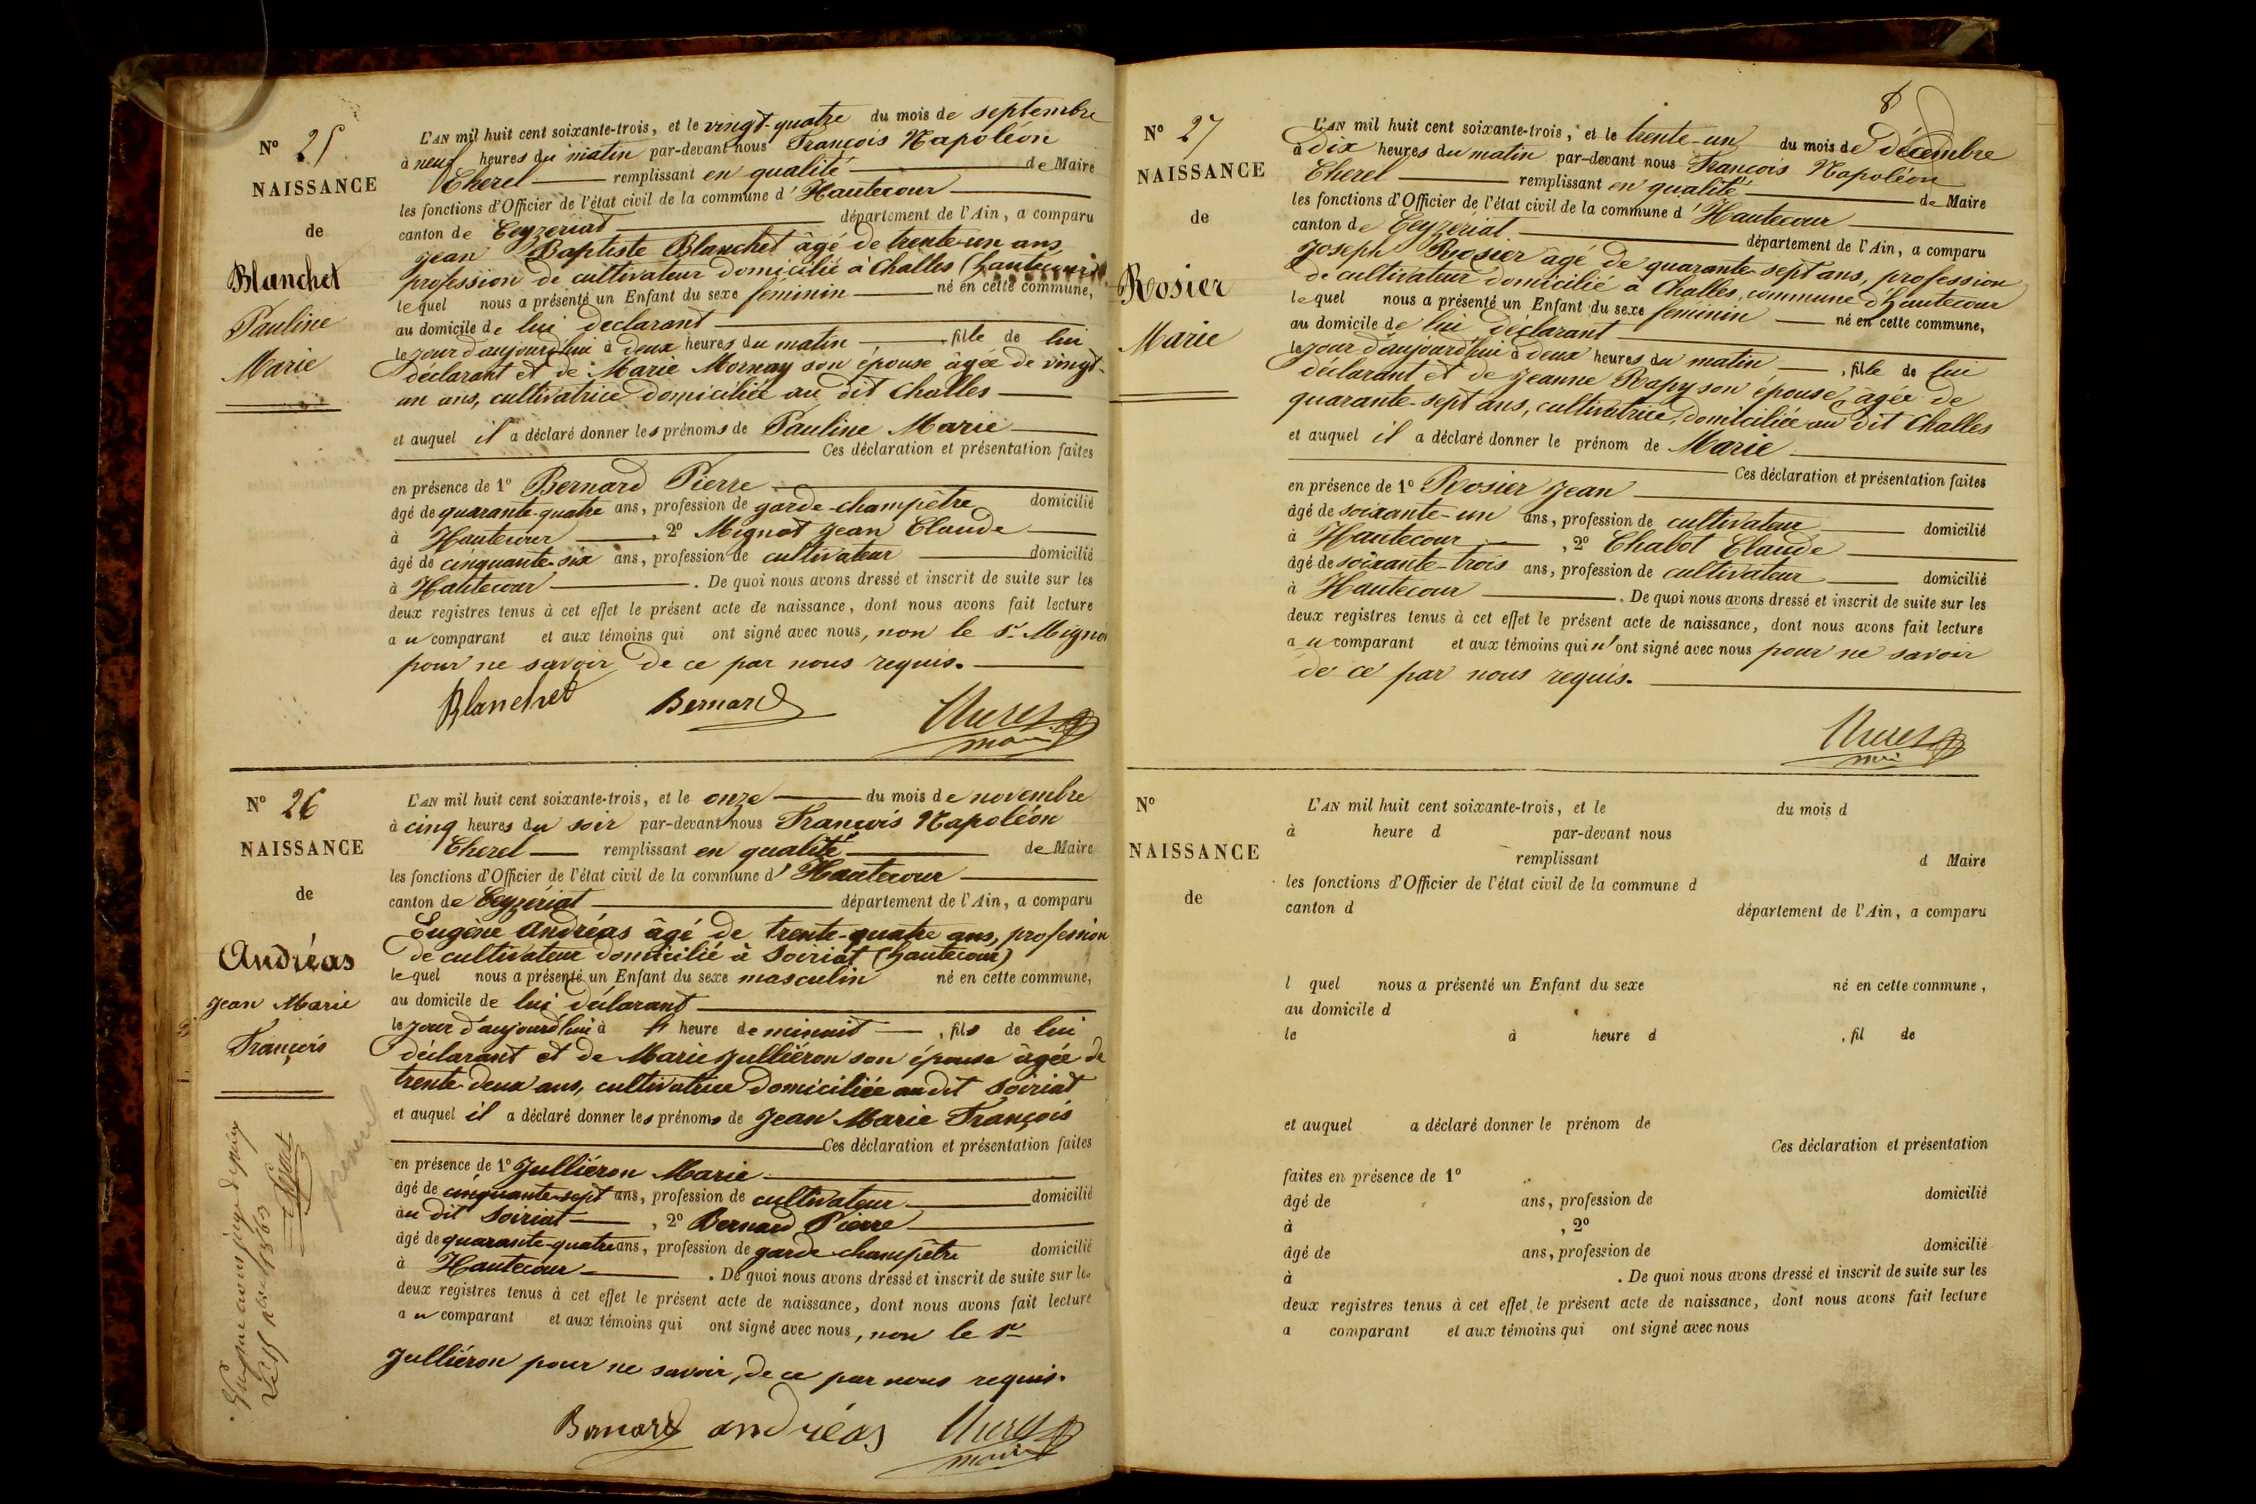 N° 25
NAISSANCE
de
Blanchet
Pauline
Marie
L'AN mil huit cent soixante-trois, et le vingt-quatre du mois de septembre
à neuf heures du matin par-devant nous François Napoléon
Cherel remplissant en qualité de Maire
les fonctions d'Officier de l'état civil de la commune d'Hautecour
canton de Ceyzériat département de l'Ain, a comparu
Jean Baptiste Blanchet âgé de trente-un ans
profession de cultivateur domicilié à Challes (hautecour)
lequel nous a présenté un Enfant du sexe féminin né en cette commune,
au domicile de lui déclarant
le jour d'aujourd'hui à deux heures du matin , fille de lui
déclarant et de Marie Mornay son épouse âgée de vingt-
un ans, cultivatrice domiciliée au dit Challes
et auquel il a déclaré donner les prénoms de Pauline Marie
Ces déclaration et présentation faites
en présence de 1° Bernard Pierre
âgé de quarante-quatre ans, profession de garde-champêtre domicilié
à Hautecour , 2° Mignot Jean Claude
âgé de cinquante-six ans, profession de cultivateur domicilié
à Hautecour . De quoi nous avons dressé et inscrit de suite sur les
deux registres tenus à cet effet le présent acte de naissance, dont nous avons fait lecture
au comparant et aux témoins qui ont signé avec nous, non le Sr Mignot
pour ne savoir de ce par nous requis.
Blanchet Bernard Cherel
maire
N° 26
NAISSANCE
de
Andréas
Jean Marie
François
L'AN mil huit cent soixante-trois, et le onze du mois de novembre
à cinq heures du soir par-devant nous François Napoléon
Cherel remplissant en qualité de Maire
les fonctions d'Officier de l'état civil de la commune d'Hautecour
canton de Ceyzériat département de l'Ain, a comparu
Eugène Andréas âgé de trente-quatre ans, profession
de cultivateur domicilié à Soiriat (hautecour)
lequel nous a présenté un Enfant du sexe masculin né en cette commune,
au domicile de lui déclarant
le jour d'aujourd'hui à heure de minuit , fils de lui
déclarant et de Marie Julliéron son épouse âgée de
trente-deux ans, cultivatrice domiciliée au dit Soiriat
et auquel il a déclaré donner les prénoms de Jean Marie François
Ces déclaration et présentation faites
en présence de 1° Julliéron Marie
âgé de cinquante-sept ans, profession de cultivateur domicilié
au dit Soiriat , 2° Bernard Pierre
âgé de quarante-quatre ans, profession de garde-champêtre domicilié
à Hautecour . De quoi nous avons dressé et inscrit de suite sur les
deux registres tenus à cet effet le présent acte de naissance, dont nous avons fait lecture
au comparant et aux témoins qui ont signé avec nous, non le Sr
Julliéron pour ne savoir, de ce par nous requis.
Bernard andréas Cherel
maire
8
N° 27
NAISSANCE
de
Rosier
Marie
L'AN mil huit cent soixante-trois, et le trente-un du mois de décembre
à dix heures du matin par-devant nous François Napoléon
Cherel remplissant en qualité de Maire
les fonctions d'Officier de l'état civil de la commune d'Hautecour
canton de Ceyzériat département de l'Ain, a comparu
Joseph Rosier âgé de quarante-sept ans, profession
de cultivateur domicilié à Challes, commune d'hautecour
lequel nous a présenté un Enfant du sexe féminin né en cette commune,
au domicile de lui déclarant
le jour d'aujourd'hui à deux heures du matin , fille de lui
déclarant et de Jeanne Rapy son épouse, âgée de
quarante-sept ans, cultivatrice, domiciliée au dit Challes
et auquel il a déclaré donner le prénom de Marie
Ces déclaration et présentation faites
en présence de 1° Rosier Jean
âgé de soixante-un ans, profession de cultivateur domicilié
à Hautecour , 2° Chabot Claude
âgé de soixante-trois ans, profession de cultivateur domicilié
à Hautecour . De quoi nous avons dressé et inscrit de suite sur les
deux registres tenus à cet effet le présent acte de naissance, dont nous avons fait lecture
au comparant et aux témoins qui n'ont signé avec nous pour ne savoir
de ce par nous requis.
Cherel
N°
NAISSANCE
de
L'AN mil huit cent soixante-trois, et le du mois d
à heure d par-devant nous
remplissant d Maire
les fonctions d'Officier de l'état civil de la commune d
canton d département de l'Ain, a comparu
l quel nous a présenté un Enfant du sexe né en cette commune,
au domicile d
le à heure d , fil de
et auquel a déclaré donner le prénom de
Ces déclaration et présentation
faites en présence de 1°
âgé de ans, profession de domicilié
à , 2°
âgé de ans, profession de domicilié
à . De quoi nous avons dressé et inscrit de suite sur les
deux registres tenus à cet effet le présent acte de naissance, dont nous avons fait lecture
a comparant et aux témoins qui ont signé avec nous